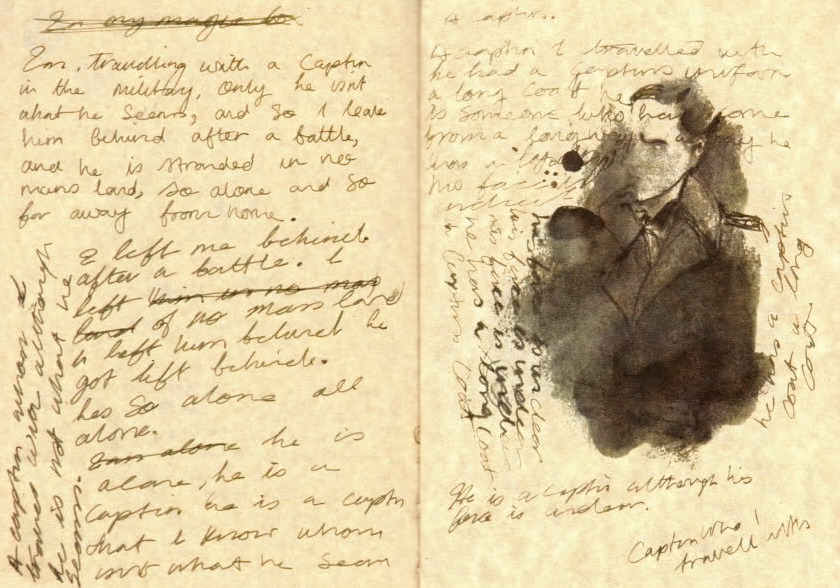 In my magic box
Im, travelling with a Captin
in the military, Only he isnt
what he Seems, and So I leave
him behind after a battle,
and he is stranded in no
mans land, So alone and So
far away from home.
I left me behind
after a battle. I
left him in no man
land of no mans land
I left him behind he
got left behind.
hes So alone all
alone.
I am alone he is
alone, he is a
Captin he is a captn
that I know whom
isnt what he Seem
A captin whom I
travel with although
he is not what he
Seems.
A captin.
A captin I travelled with
he had a Captins uniform
a long Coat he
is Someone who has come
from a long way
his face is unclear
he has a long Coat
he has a captins
coat a long
Coat.
He is a captin although his
face is unclear.
Captin who I
travell with